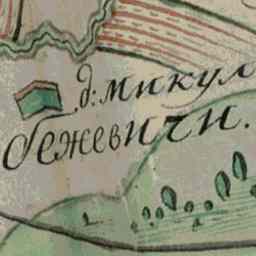 д: микул
бежевичи.